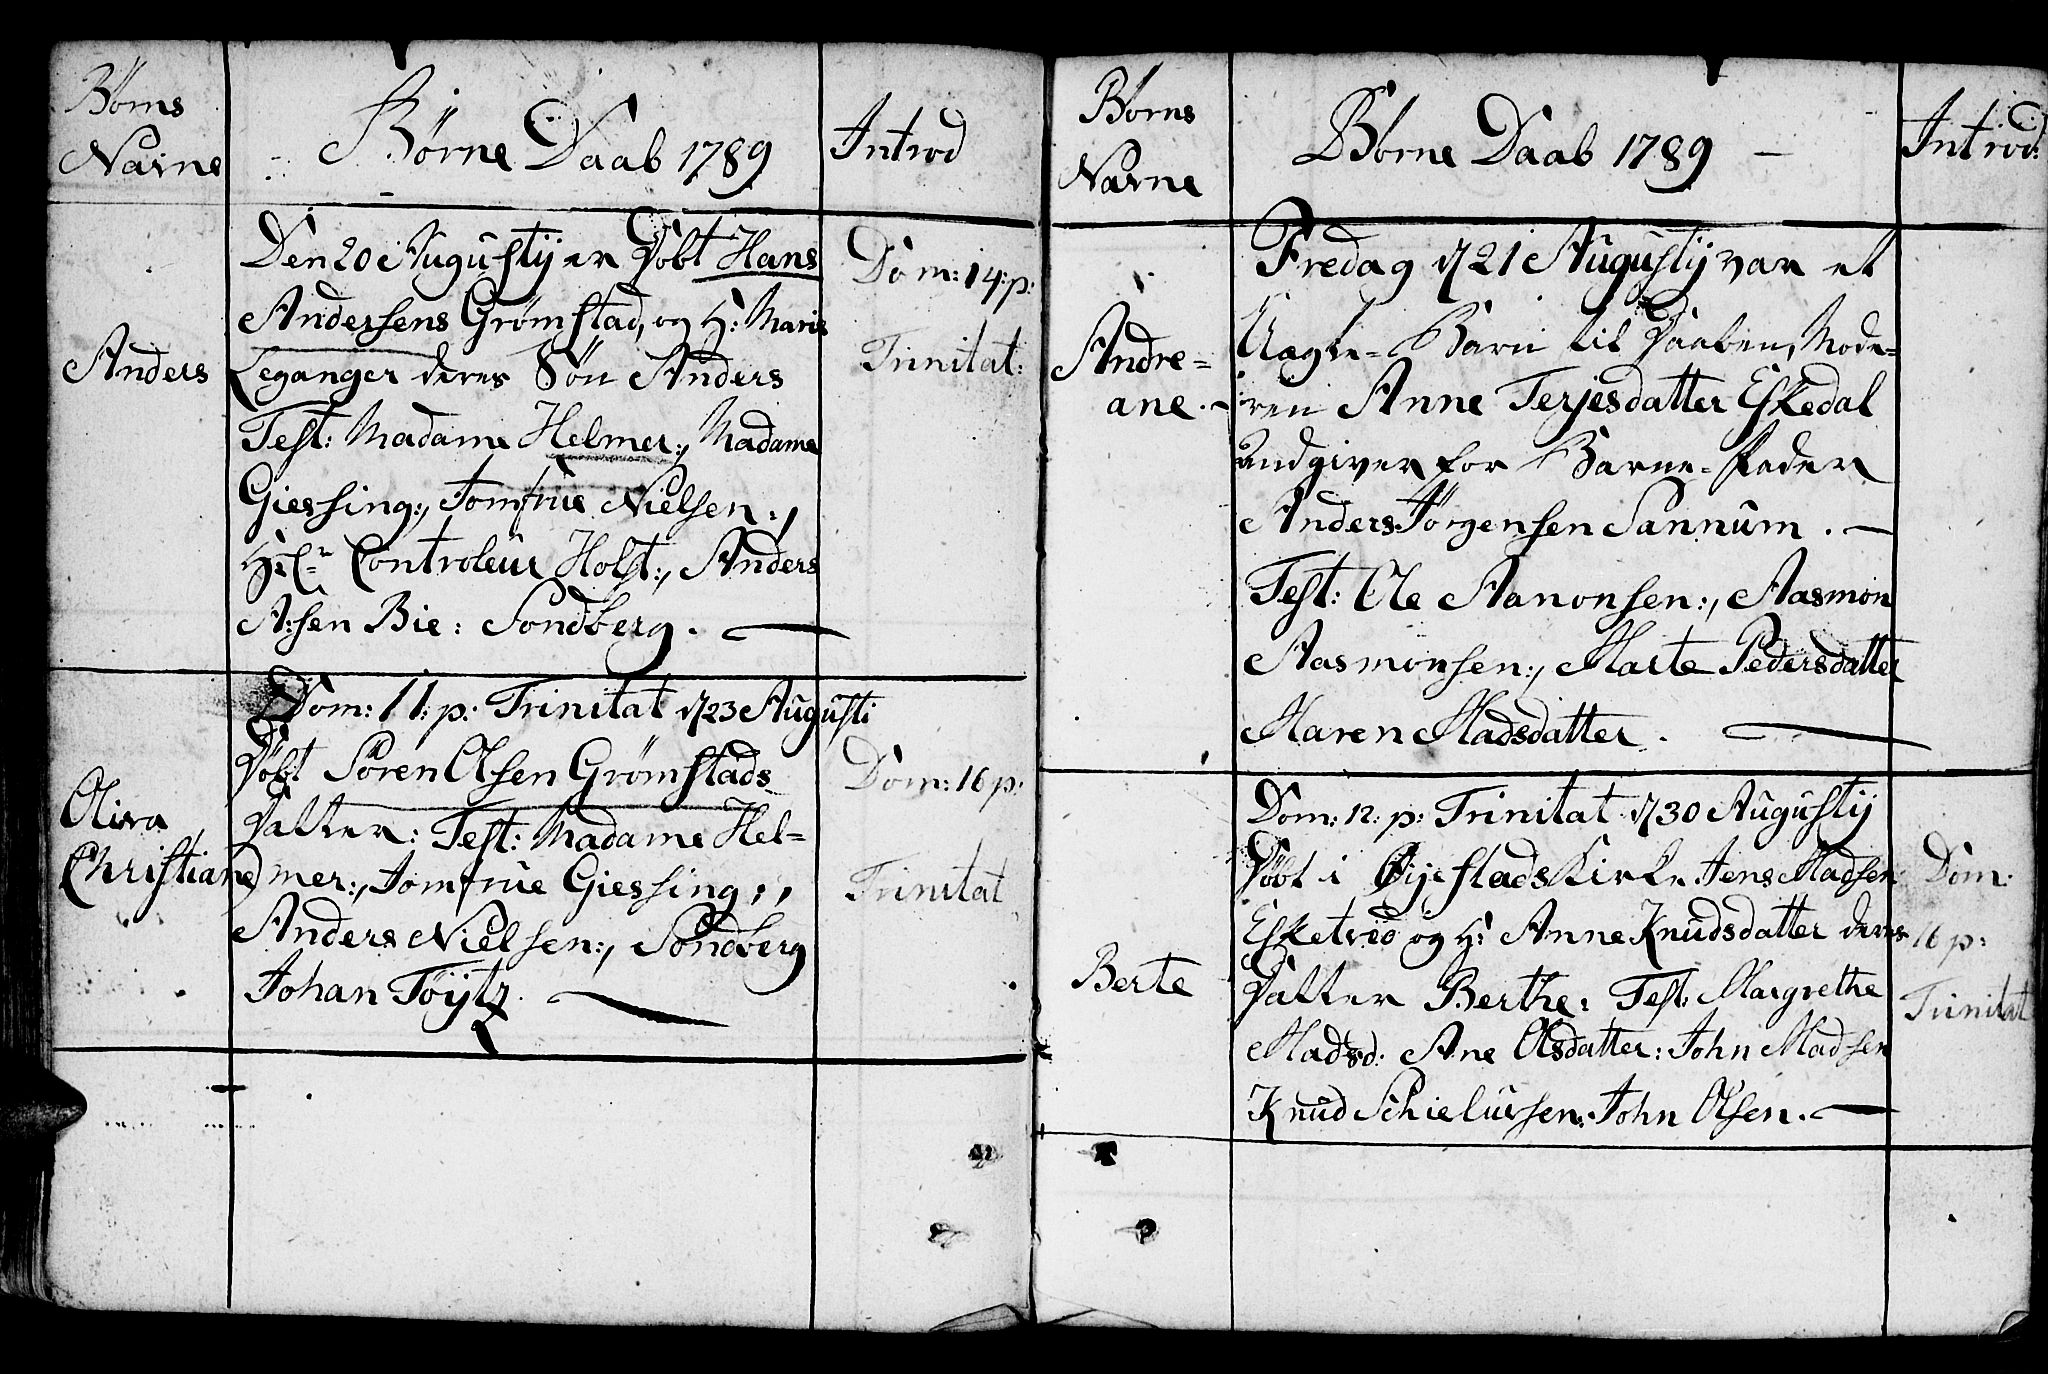 Börns
Navne
Børne Daab 1789
Introd
Den 20 Augustij er Döbt Hans
Andersens Grømstad, og H: Maria
Leganger deres Sön Anders
Test: Madame Helmer:, Madame
Giessing:, Jomfrue Nielsen:,
Controleur Holst:, Anders
A:sen Bie: Sondberg.
Anders
Dom: 14: p:
Trinitat:
Dom: 11: p: Trinitat d/23 Augusti
Döbt Sören Olsen Grømstads
Datter: Test: Madame Hel-
mer:, Jomfrue Giessing:,
Anders Nielsen:, Sondberg
Johan Töytz.
Oliva
Christiane
Dom: 16 p:
Trinitat
Börns
Navne
Børne Daab 1789
Introd:
Fredag d/21 Augustij var et
Uægte-Barn til Daaben, Mode-
ren Anne Terjesdatter Eskedal
udgiver for Barne-Fader
Anders Jörgensen Sannum.
Test: Ole Aanonsen:, Aasmon
Aasmonsen:, Marte Pedersdatter
Maren Madsdatter.
Andre-
ane.
Dom: 12: p: Trinitat d/30 Augustij
Döbt i Øyestads Kirke Jens Madsen
Esketveo og H: Anne Knudsdatter deres
Datter Berthe: Test: Margrethe
Madsd: Ane Olsdatter: John Madsen
Knud Schielursen: John Olsen.
Berte
Dom:
16 p:
Trinitat